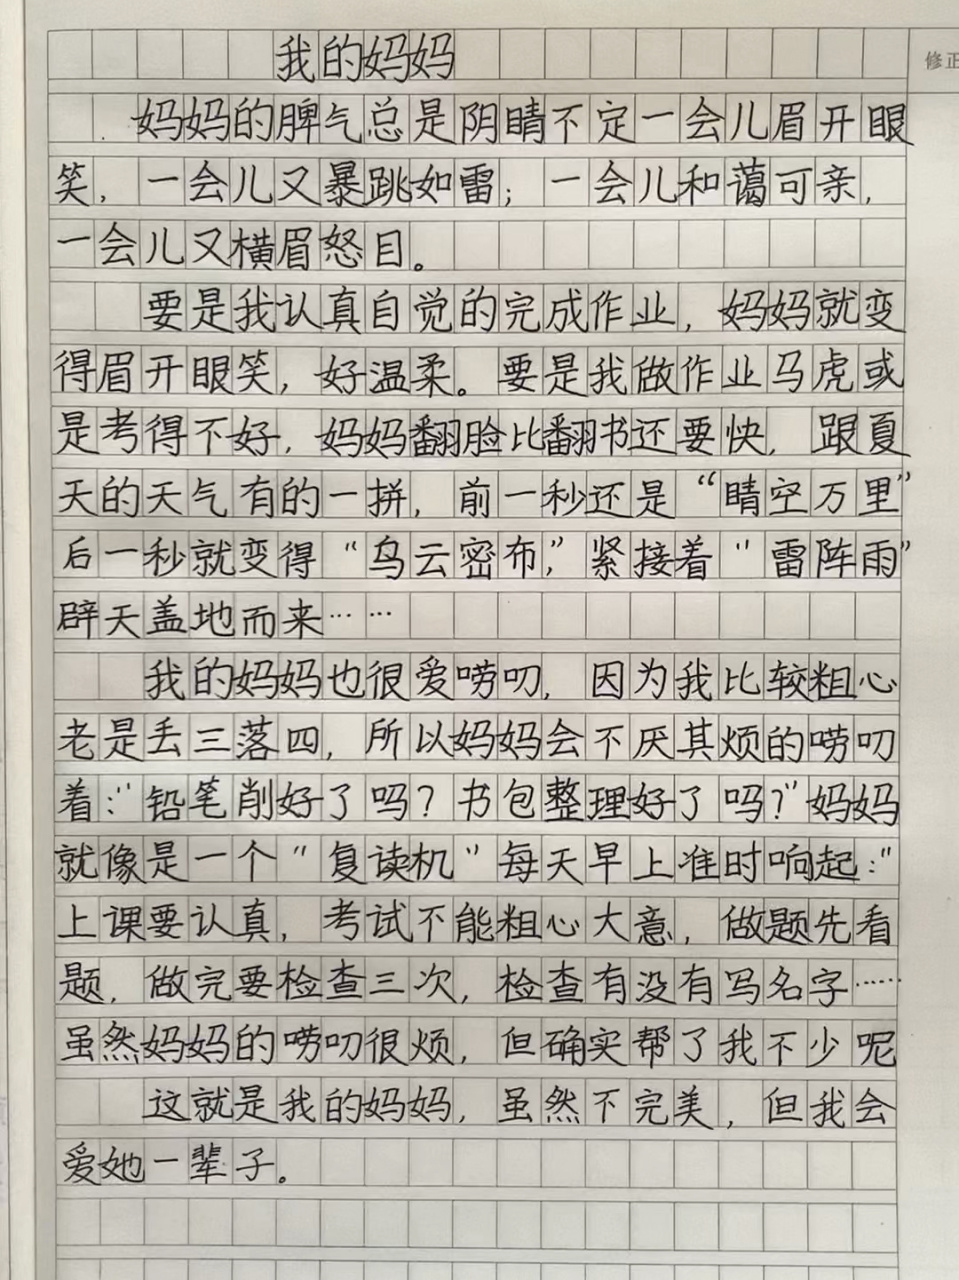 我的妈妈
修正
妈妈的脾气总是阴晴不定一会儿眉开眼
笑，一会儿又暴跳如雷；一会儿和蔼可亲，
一会儿又横眉怒目。
要是我认真自觉的完成作业，妈妈就变
得眉开眼笑，好温柔。要是我做作业马虎或
是考得不好，妈妈翻脸比翻书还要快，跟夏
天的天气有的一拼，前一秒还是“晴空万里”
后一秒就变得“乌云密布，”紧接着“雷阵雨”
辟天盖地而来……
我的妈妈也很爱唠叨，因为我比较粗心
老是丢三落四，所以妈妈会不厌其烦的唠叨
着：“铅笔削好了吗？书包整理好了吗？”妈妈
就像是一个“复读机”每天早上准时响起：“
上课要认真，考试不能粗心大意，做题先看
题，做完要检查三次，检查有没有写名字……
虽然妈妈的唠叨很烦，但确实帮了我不少呢
这就是我的妈妈，虽然不完美，但我会
爱她一辈子。